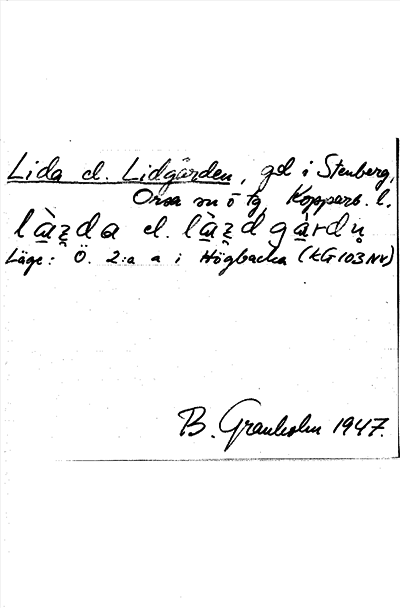 Lida el. Lidgården, gd i Stenberg,
Orsa sn o tg Kopparb. l.
làzda el. làzd gàrdn̥
Läge: Ö. 2:a a i Högbacka (KG 103 NV)
B. Granholm 1947.